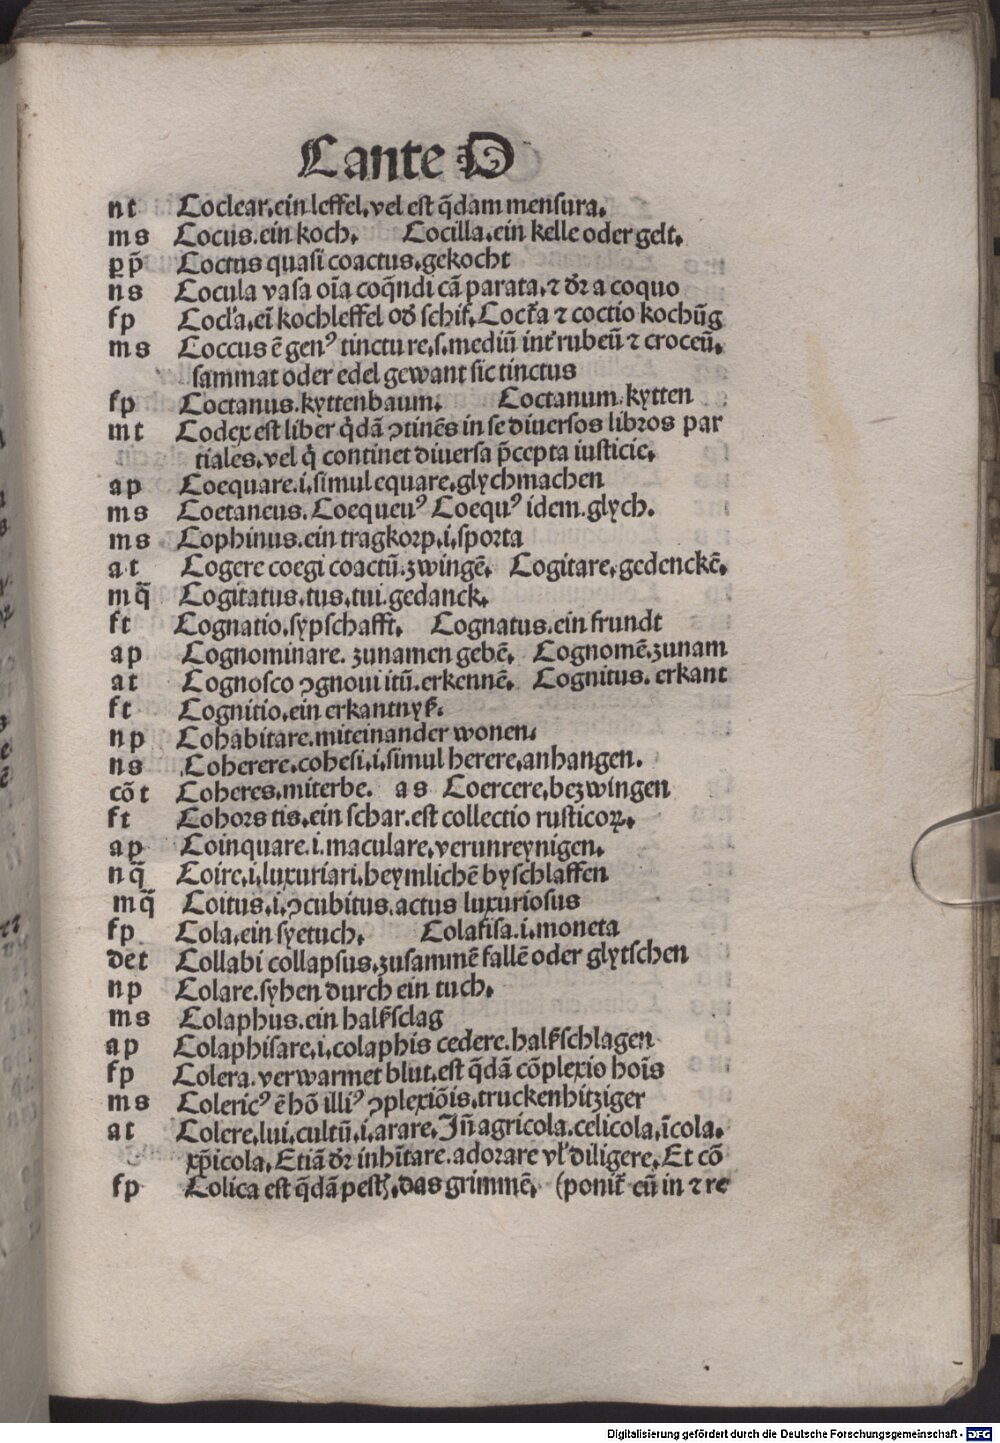 C ante O
n t Coclear.ein leffel.vel est q̄dam mensura.
m s Cocus.ein koch. Cocilla.ein kelle oder gelt.
ꝑ p̄ Coctus quasi coactus.gekocht
n s Cocula vasa oīa coq̄ndi cā parata.⁊ dr̄ a coquo
f p Cocl'a.eī kochleffel od' schif. Coct̄a ⁊ coctio kochūg
m s Coccus ē genꝰ tincture.s.mediū int' rubeū ⁊ croceū.
sammat oder edel gewant sic tinctus
f p Coctanus.kyttenbaum. Coctanum.kytten
m t Codex est liber q̇dā ꝯtinēs in se diuersos libros par
tiales.vel q̇ continet diuersa p̄cepta iusticie.
a p Coequare.i.simul equare.glychmachen
m s Coetaneus. Coequeuꝰ Coequꝰ idem.glych.
m s Cophinus.ein tragkorp.i.sporta
a t Cogere coegi coactū.zwingē. Cogitare.gedenckē.
m q̄ Cogitatus.tus.tui.gedanck.
f t Cognatio.sypschafft. Cognatus.ein frundt
a p Cognominare. zunamen gebē. Cognomē.zunam
a t Cognosco ꝯgnoui itū.erkennē. Cognitus. erkant
f t Cognitio.ein erkantnyß.
n p Cohabitare.miteinander wonen.
n s Coherere.cohesi.i.simul herere.anhangen.
cō t Coheres.miterbe. a s Coercere.bezwingen
f t Cohors tis.ein schar.est collectio rusticoꝝ.
a p Coinquare.i.maculare.verunreynigen.
n q̄ Coire.i.luxuriari.heymlichē byschlaffen
m q̄ Coitus.i.ꝯcubitus.actus luxuriosus
f p Cola.ein syetuch. Colafisa.i.moneta
de t Collabi collapsus.zusammē fallē oder glytschen
n p Colare.syhen durch ein tuch.
m s Colaphus.ein halßsclag
a p Colaphisare.i.colaphis cedere.halßschlagen
f p Colera.verwarmet blut.est q̄dā cōplexio hoīs
m s Colericꝰ ē hō illiꝰ ꝯplexiōis.truckenhitziger
a t Colere.lui.cultū.i.arare.Jn̄ agricola.celicola.īcola.
xp̄icola. Etiā dr̄ inhītare.adorare vl' diligere. Et cō
f p Colica est q̄dā pestꝭ.das grimmē. (ponit̄ cū in ⁊ re
Digitalisierung gefördert durch die Deutsche Forschungsgemeinschaft - DFG